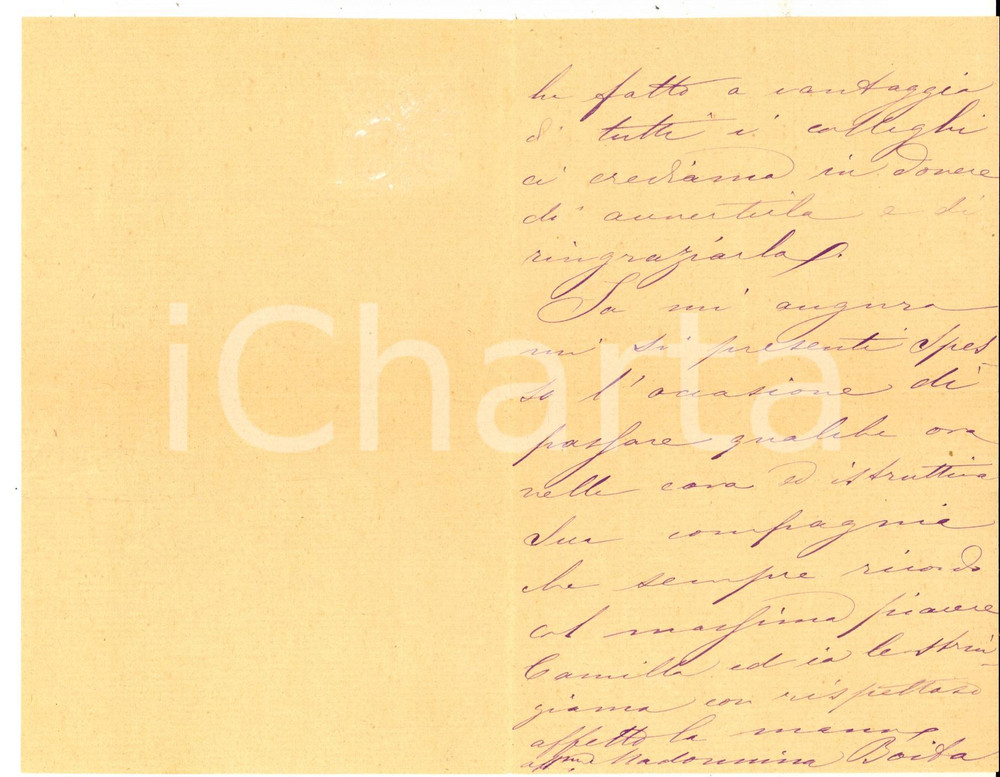 ha fatto a vantaggio
di tutti i colleghi
ci crediamo in dovere
di avvertirla e di
ringraziarla.
Io mi auguro
mi si presenti spes-
so l'occasione di
passare qualche ora
nella cara ed istruttiva
Sua compagnia
che sempre ricordo
col massimo piacere
Camillo ed io le strin-
giamo con rispettoso
affetto la mano
aff.ma Madonnina Boito
iCharta